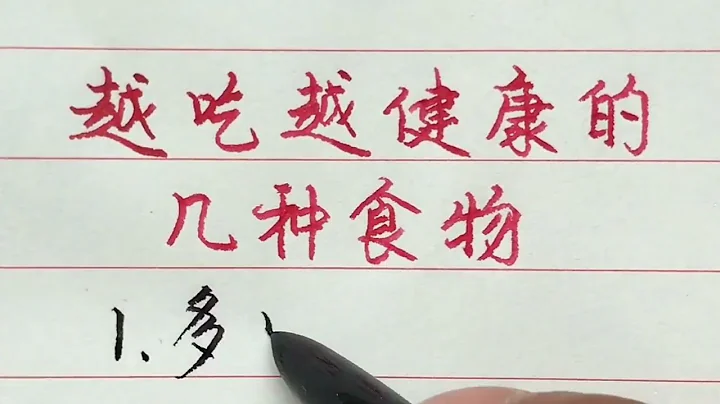 越吃越健康的
几种食物
1、多